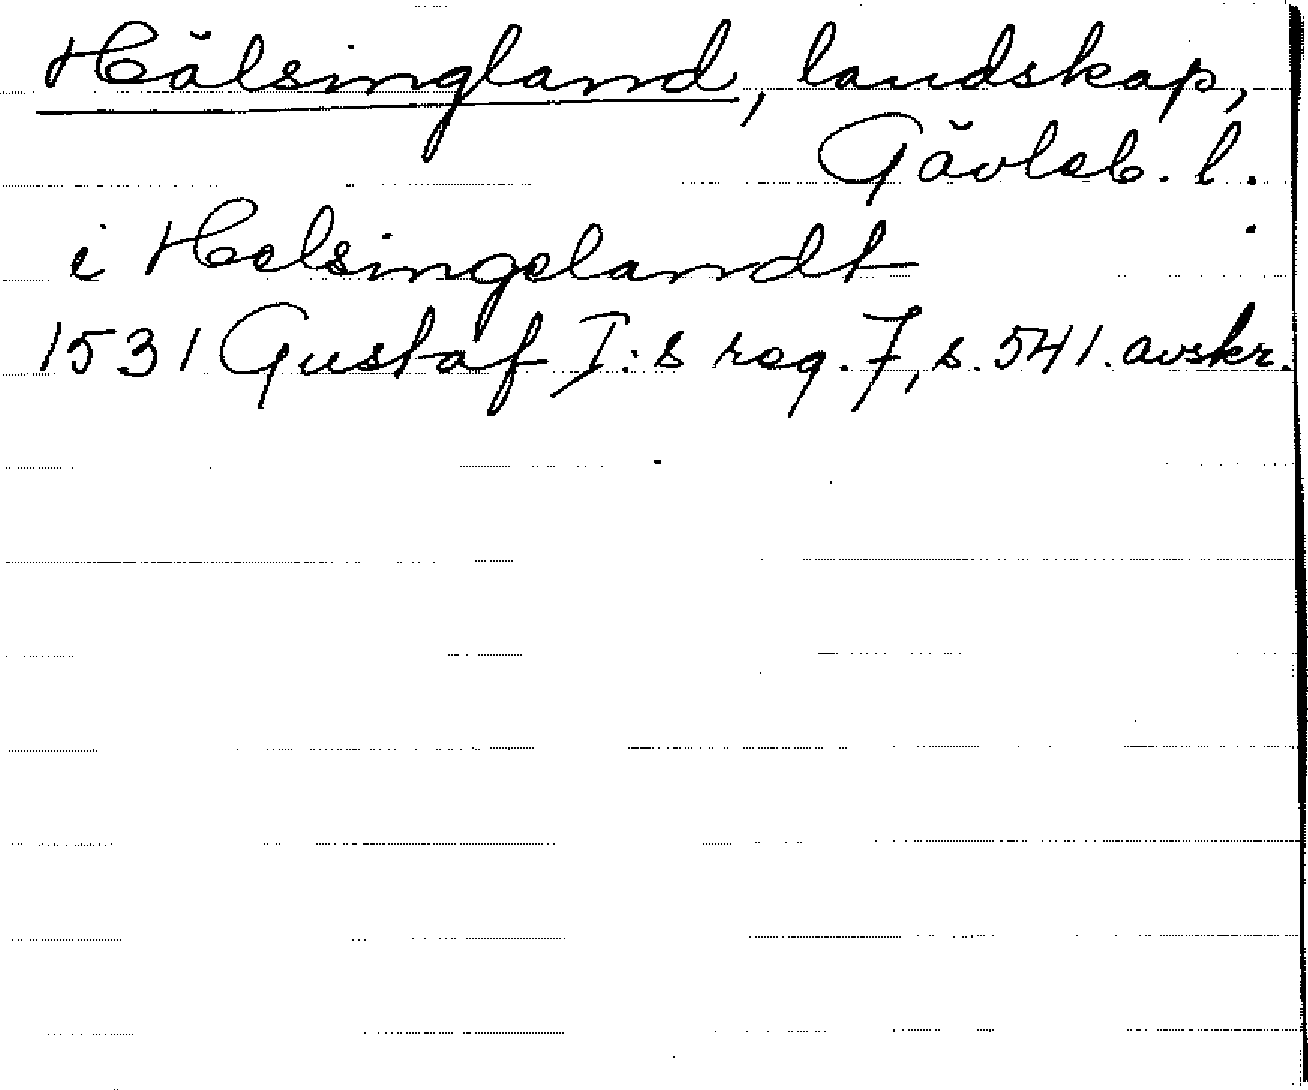 Hälsingland, landskap,
Gävleb. l.
i Helsingelandt
1531 Gustaf I:s reg. 7, s. 541. avskr.